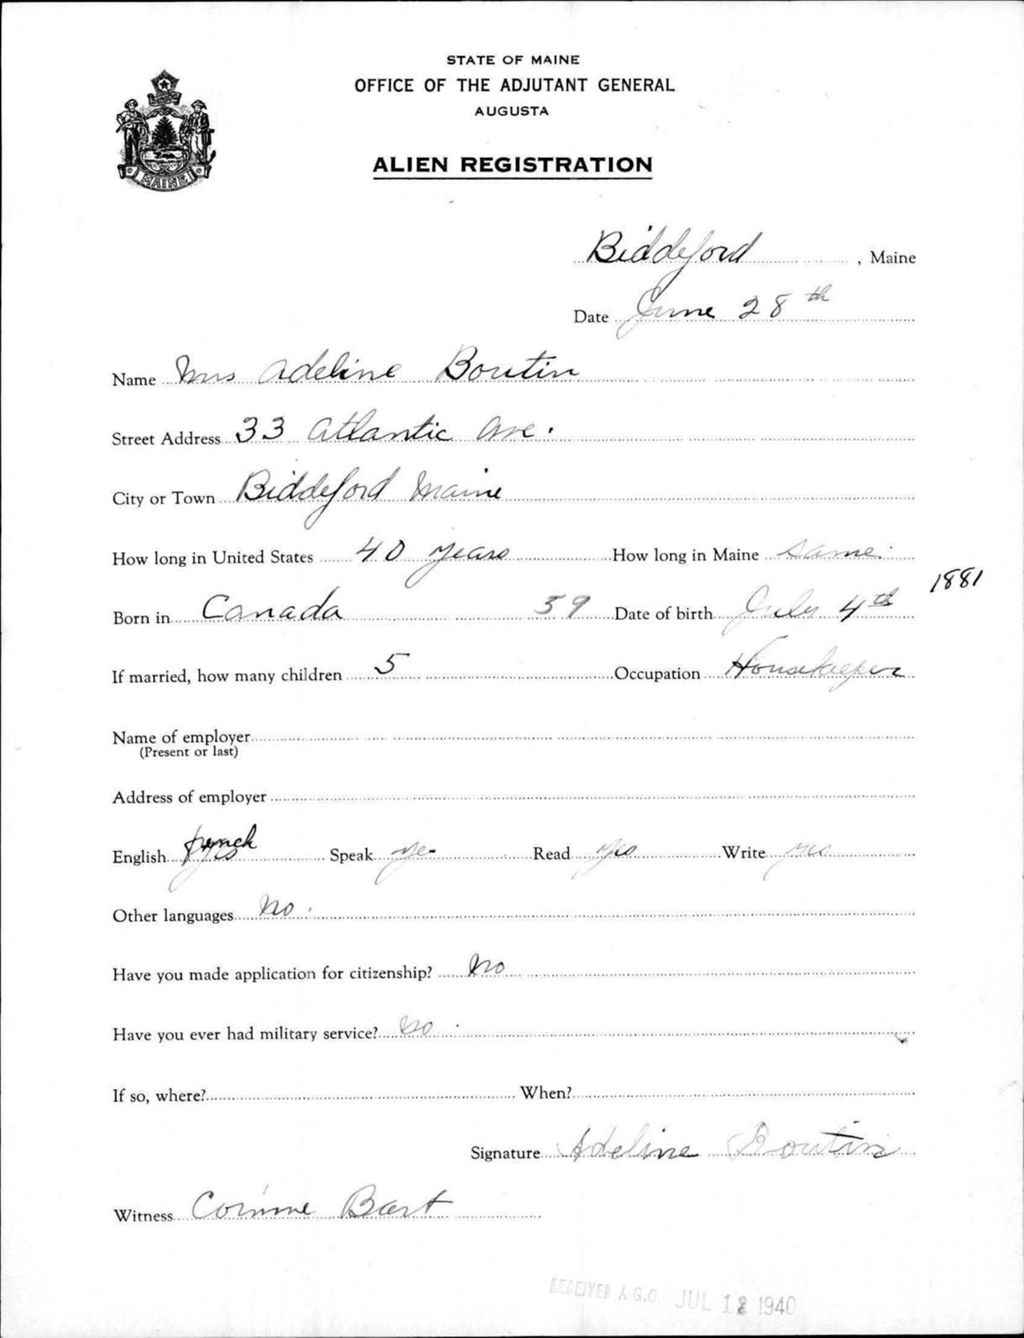 STATE OF MAINE
OFFICE OF THE ADJUTANT GENERAL
AUGUSTA
MAINE
ALIEN REGISTRATION
Biddeford, Maine
Date June 28th
Name Mrs Adeline Boutin
Street Address 33 Atlantic Ave.
City or Town Biddeford Maine
How long in United States 40 years How long in Maine same.
1881
Born in Canada 59 Date of birth July 4th
If married, how many children 5 Occupation Housekeeper
Name of employer
(Present or last)
Address of employer
french
English yes Speak yes Read yes Write yes
Other languages no.
Have you made application for citizenship? no
Have you ever had military service? no.
If so, where? When?
Signature Adeline Boutin
Witness Corinne Bart
RECEIVED A.G.O. JUL 12 1940